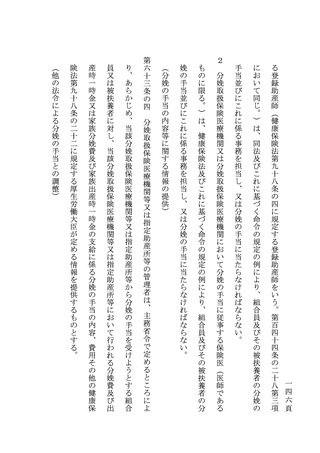 一四六頁
る登録助産師（健康保険法第九十八条の四に規定する登録助産師をいう。第百四十四条の二十八第三項
において同じ。）は、同法及びこれに基づく命令の規定の例により、組合員及びその被扶養者の分娩の
手当並びにこれに係る事務を担当し、又は分娩の手当に当たらなければならない。
２　分娩取扱保険医療機関又は分娩取扱保険医療機関において分娩の手当に従事する保険医（医師である
ものに限る。）は、健康保険法及びこれに基づく命令の規定の例により、組合員及びその被扶養者の分
娩の手当並びにこれに係る事務を担当し、又は分娩の手当に当たらなければならない。
（分娩の手当の内容等に関する情報の提供）
第六十三条の四　分娩取扱保険医療機関等又は指定助産所等の管理者は、主務省令で定めるところによ
り、あらかじめ、当該分娩取扱保険医療機関等又は指定助産所等から分娩の手当を受けようとする組合
員又は被扶養者に対し、当該分娩取扱保険医療機関等又は指定助産所等において行われる分娩費及び出
産時一時金又は家族分娩費及び家族出産時一時金の支給に係る分娩の手当の内容、費用その他の健康保
険法第九十八条の二十二に規定する厚生労働大臣が定める情報を提供するものとする。
（他の法令による分娩の手当との調整）